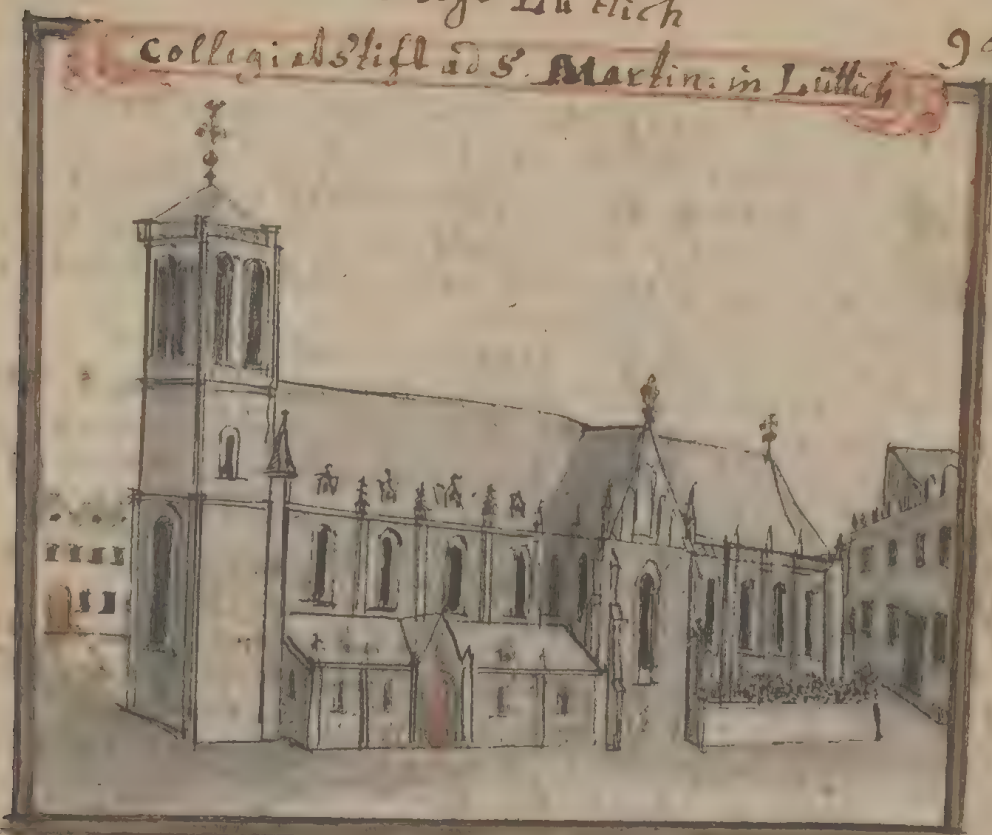 Lüttich
9
Collegiatstift ad S. Martin: in Lüttich